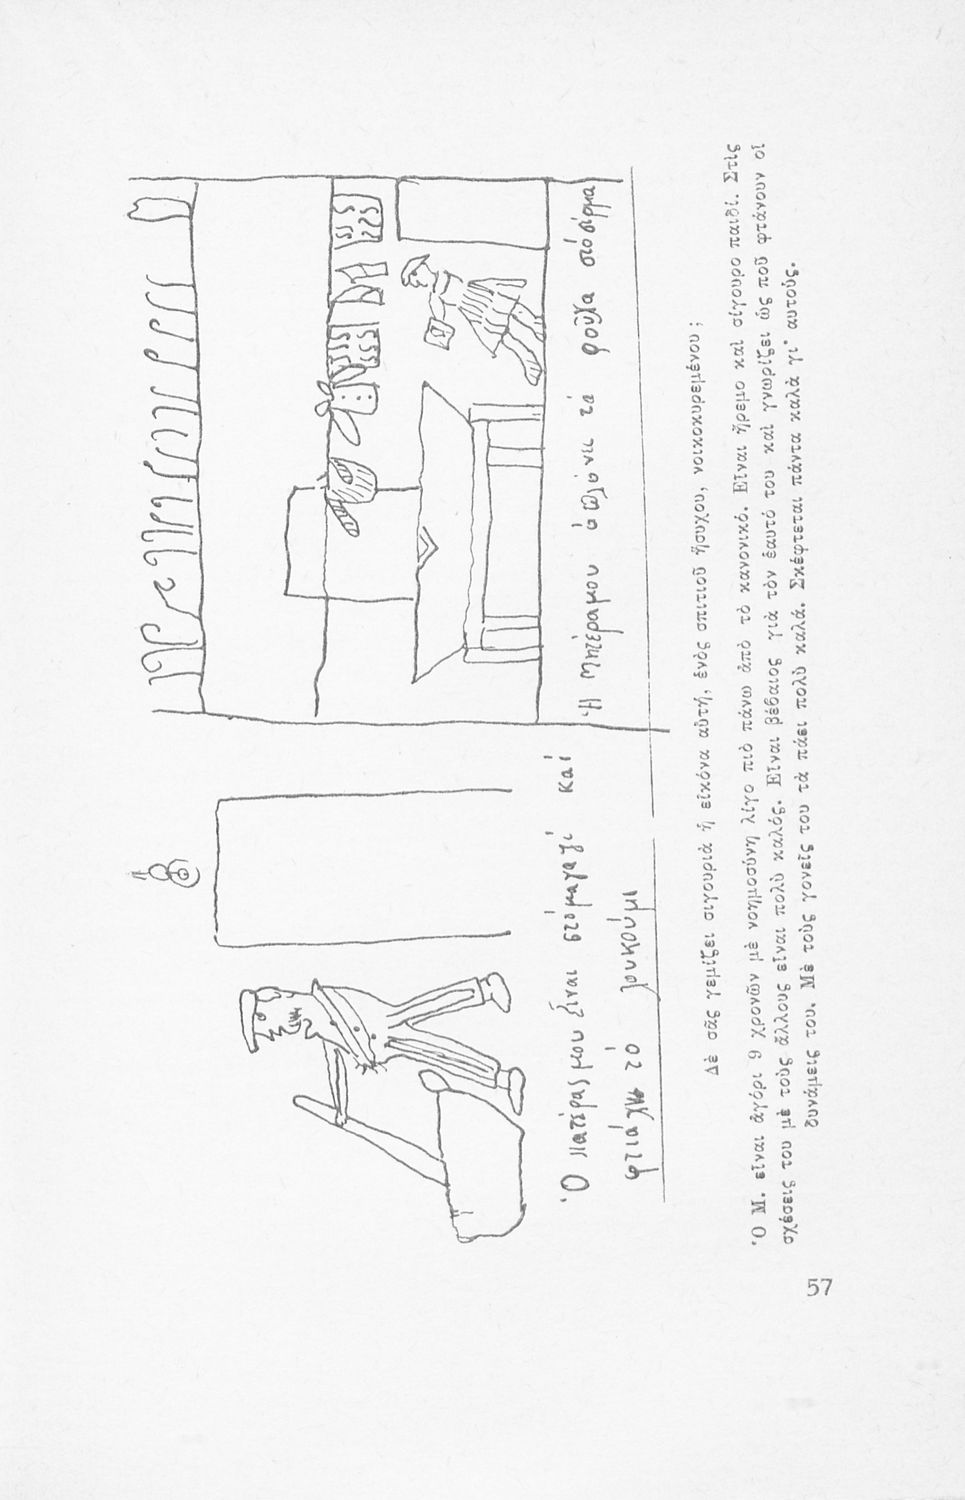 Ὁ πατέρας μου εἶναι στόμαγαζί καί
φτιάχνι τό λουκούμι
Ἡ μητέραμου ἁπλόνει τά ροῦχα στόσίρμα
Δὲ σᾶς γεμίζει σιγουριὰ ἡ εἰκόνα αὐτή, ἑνὸς σπιτιοῦ ἥσυχου, νοικοκυρεμένου ;
Ὁ Μ. εἶναι ἀγόρι 9 χρονῶν μὲ νοημοσύνη λίγο πιὸ πάνω ἀπὸ τὸ κανονικό. Εἶναι ἤρεμο καὶ σίγουρο παιδί. Στὶς
σχέσεις του μὲ τοὺς ἄλλους εἶναι πολὺ καλός. Εἶναι βέβαιος γιὰ τὸν ἑαυτό του καὶ γνωρίζει ὡς ποῦ φτάνουν οἱ
δυνάμεις του. Μὲ τοὺς γονεῖς του τὰ πάει πολὺ καλά. Σκέφτεται πάντα καλὰ γι᾿ αυτούς.
57